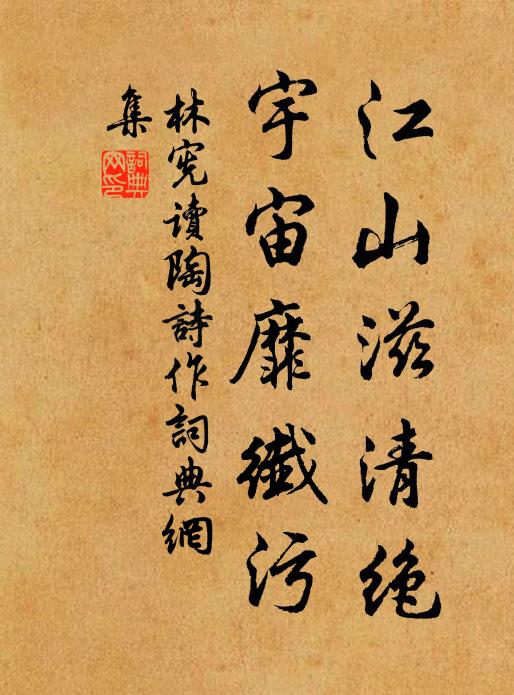 江山滋清絶
宇宙靡纖污
林宪讀陶詩作詞典網
集
詞典网印